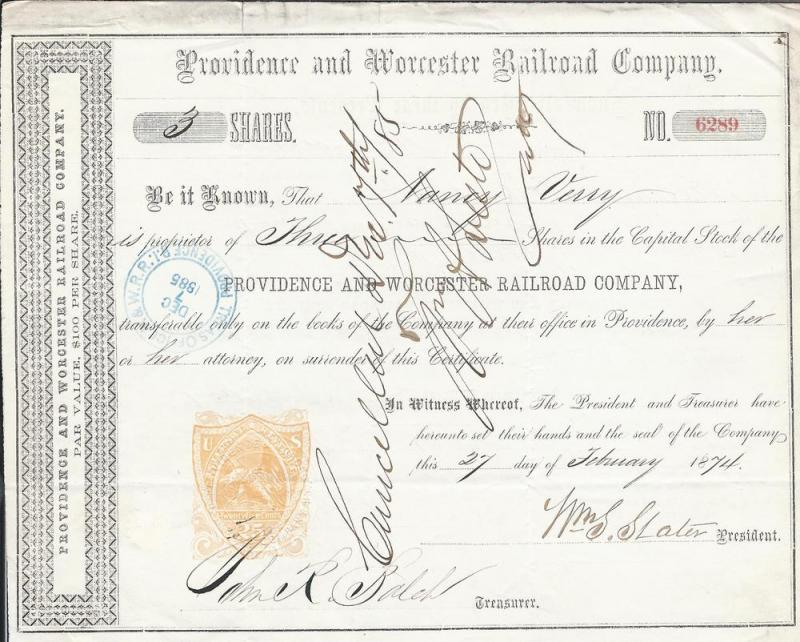 Providence and Worcester Railroad Company.
3 SHARES. NO. 6289
Be it Known, That Nancy Verry
is proprietor of Three Shares in the Capital Stock of the
PROVIDENCE AND WORCESTER RAILROAD COMPANY,
transferable only on the books of the Company at their office in Providence, by her
or her attorney, on surrender of this Certificate.
In Witness Whereof, The President and Treasurer have
hereunto set their hands and the seal of the Company
this 27 day of February 1874.
Wm S. Slater President.
John R. Balch Treasurer.
PROVIDENCE AND WORCESTER RAILROAD COMPANY.
PAR VALUE, $100 PER SHARE.
Cancelled Dec. 7th/85
DEC
7
1985
U S
25